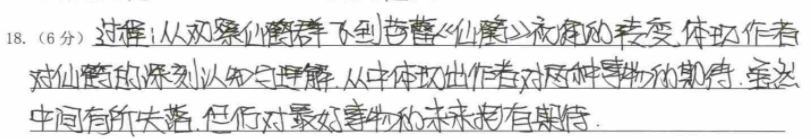 18.（6分）过程:从观察仙鹤群飞到苍鹭《仙鹤》视角的转变,体现作者
对仙鹤的深刻认知与理解.从中体现出作者对两种事物的期待.虽然
中间有所失落,但仍对最好事物的未来抱有期待.